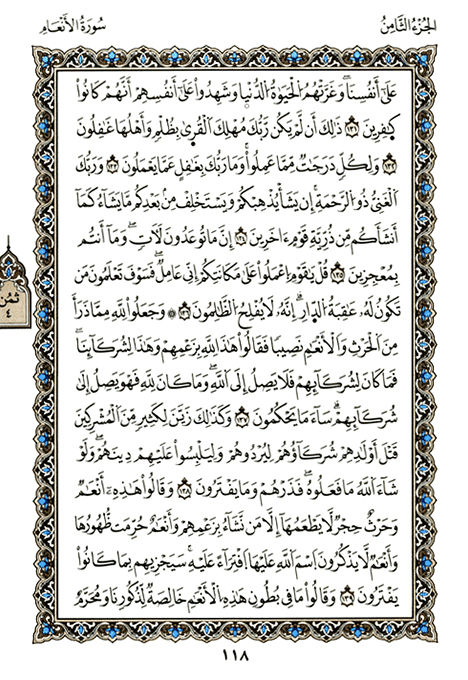 الجُزْءُ الثَّامِنُ
سُورَةُ الأَنْعَامِ
عَلَىٰ أَنفُسِنَا وَغَرَّتْهُمُ الْحَيَوٰةُ الدُّنْيَا وَشَهِدُوا عَلَىٰ أَنفُسِهِمْ أَنَّهُمْ كَانُوا
كَٰفِرِينَ ١٣١ ذَٰلِكَ أَن لَّمْ يَكُن رَّبُّكَ مُهْلِكَ الْقُرَىٰ بِظُلْمٍ وَأَهْلُهَا غَٰفِلُونَ
١٣٢ وَلِكُلٍّ دَرَجَٰتٌ مِّمَّا عَمِلُوا وَمَا رَبُّكَ بِغَٰفِلٍ عَمَّا يَعْمَلُونَ ١٣٣ وَرَبُّكَ
الْغَنِيُّ ذُو الرَّحْمَةِ إِن يَشَأْ يُذْهِبْكُمْ وَيَسْتَخْلِفْ مِنۢ بَعْدِكُم مَّا يَشَآءُ كَمَا
أَنشَأَكُم مِّن ذُرِّيَّةِ قَوْمٍ ءَاخَرِينَ ١٣٤ إِنَّ مَا تُوعَدُونَ لَأٓتٍ وَمَا أَنتُم
بِمُعْجِزِينَ ١٣٥ قُلْ يَٰقَوْمِ اعْمَلُوا عَلَىٰ مَكَانَتِكُمْ إِنِّي عَامِلٌ فَسَوْفَ تَعْلَمُونَ مَن
تَكُونُ لَهُۥ عَٰقِبَةُ الدَّارِ إِنَّهُۥ لَا يُفْلِحُ الظَّٰلِمُونَ ١٣٦ ۞ وَجَعَلُوا لِلَّهِ مِمَّا ذَرَأَ
مِنَ الْحَرْثِ وَالْأَنْعَٰمِ نَصِيبًا فَقَالُوا هَٰذَا لِلَّهِ بِزَعْمِهِمْ وَهَٰذَا لِشُرَكَآئِنَا
فَمَا كَانَ لِشُرَكَآئِهِمْ فَلَا يَصِلُ إِلَى اللَّهِ وَمَا كَانَ لِلَّهِ فَهُوَ يَصِلُ إِلَىٰ
شُرَكَآئِهِمْ سَآءَ مَا يَحْكُمُونَ ١٣٧ وَكَذَٰلِكَ زَيَّنَ لِكَثِيرٍ مِّنَ الْمُشْرِكِينَ
قَتْلَ أَوْلَٰدِهِمْ شُرَكَآؤُهُمْ لِيُرْدُوهُمْ وَلِيَلْبِسُوا عَلَيْهِمْ دِينَهُمْ وَلَوْ
شَآءَ اللَّهُ مَا فَعَلُوهُ فَذَرْهُمْ وَمَا يَفْتَرُونَ ١٣٨ وَقَالُوا هَٰذِهِۦٓ أَنْعَٰمٌ
وَحَرْثٌ حِجْرٌ لَّا يَطْعَمُهَا إِلَّا مَن نَّشَآءُ بِزَعْمِهِمْ وَأَنْعَٰمٌ حُرِّمَتْ ظُهُورُهَا
وَأَنْعَٰمٌ لَّا يَذْكُرُونَ اسْمَ اللَّهِ عَلَيْهَا افْتِرَآءً عَلَيْهِ سَيَجْزِيهِم بِمَا كَانُوا
يَفْتَرُونَ ١٣٩ وَقَالُوا مَا فِي بُطُونِ هَٰذِهِ الْأَنْعَٰمِ خَالِصَةٌ لِّذُكُورِنَا وَمُحَرَّمٌ
ثُمُن
٤
١١٨